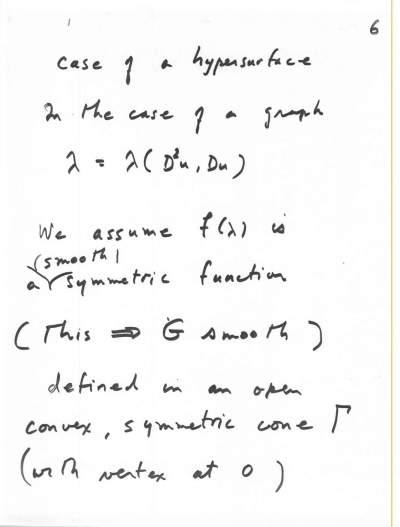 6
case of a hypersurface
In the case of a graph
λ = λ(D²u, Du)
We assume f(λ) is
(smooth)
a symmetric function
(This ⇒ G smooth)
defined in an open
convex, symmetric cone Γ
(with vertex at 0)